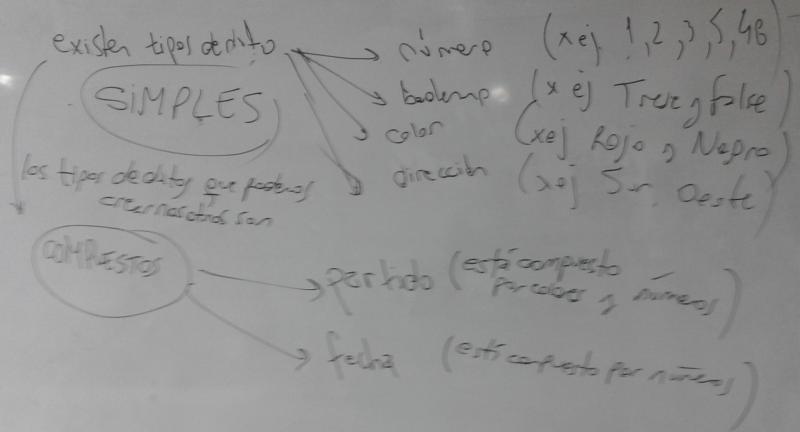 existen tipos de dato
SIMPLES
número (x ej 1, 2, 3, 5, 48
booleano (x ej True y false)
color (xej Rojo y Negro)
dirección (xej Sur, Oeste)
los tipos de datos que podemos
crear nosotros son
COMPUESTOS
partido (está compuesto
por colores y números)
fecha (está compuesto por números)